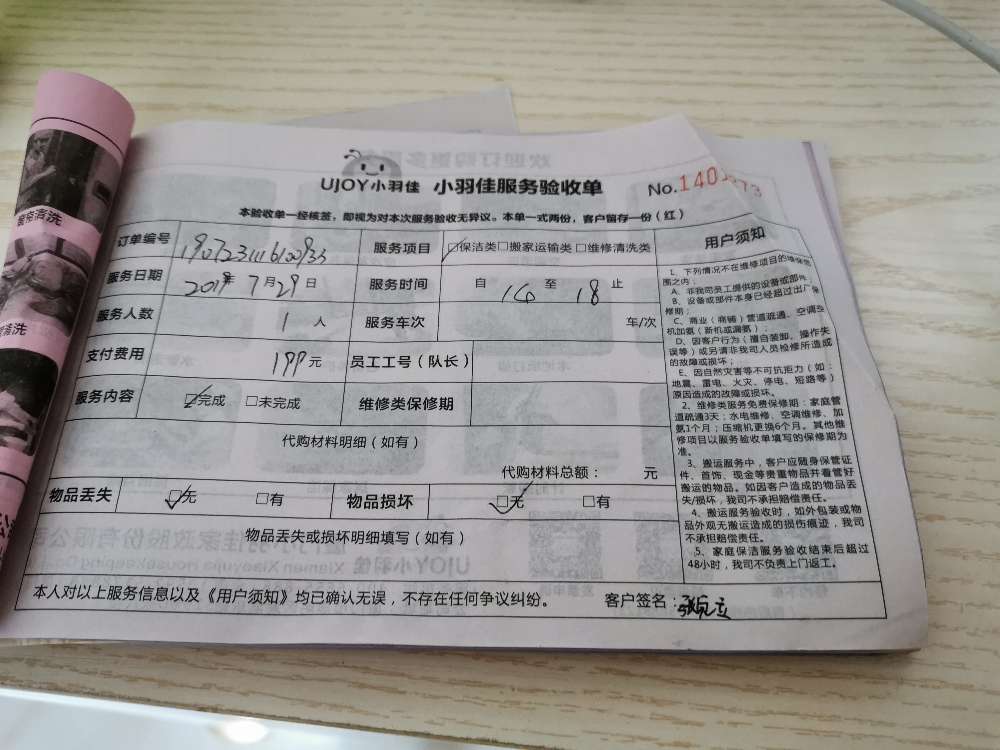 UJOY小羽佳 小羽佳服务验收单 No.140
本验收单一经核签，即视为对本次服务验收无异议。本单一式两份，客户留存一份（红）
订单编号
服务项目 ☑保洁类□搬家运输类□维修清洗类
服务日期 2019年 7月29日
服务时间 自 16 至 18 止
服务人数 1 人
服务车次 车/次
支付费用 199元
员工工号（队长）
服务内容 ☑完成 □未完成
维修类保修期
代购材料明细（如有）
代购材料总额： 元
物品丢失 ☑无 □有
物品损坏 ☑无 □有
物品丢失或损坏明细填写（如有）
用户须知
1、下列情况不在维修项目的维保范
围之内：
A、非我司员工提供的设备或部件
B、设备或部件本身已经超过出厂保
修期；
C、商业（商铺）管道疏通、空调
机加氨（新机或漏氨）；
D、因客户行为（擅自装卸、操作失
误等）或另请非我司人员检修所造成
的故障或损坏；
E、因自然灾害等不可抗拒力（如：
地震、雷电、火灾、停电、短路等）
原因造成的故障或损坏。
2、维修类服务免费保修期：家庭管
道疏通3天；水电维修、空调维修、加
氨1个月；压缩机更换6个月。其他维
修项目以服务验收单填写的保修期为
准。
3、搬运服务中，客户应随身保管证
件、首饰、现金等贵重物品并看管好
搬运的物品。如因客户造成的物品丢
失/损坏，我司不承担赔偿责任。
4、搬运服务验收时，如外包装或物
品外观无搬运造成的损伤痕迹，我司
不承担赔偿责任。
5、家庭保洁服务验收结束后超过
48小时，我司不负责上门返工。
本人对以上服务信息以及《用户须知》均已确认无误，不存在任何争议纠纷。 客户签名：
清洗
清洗